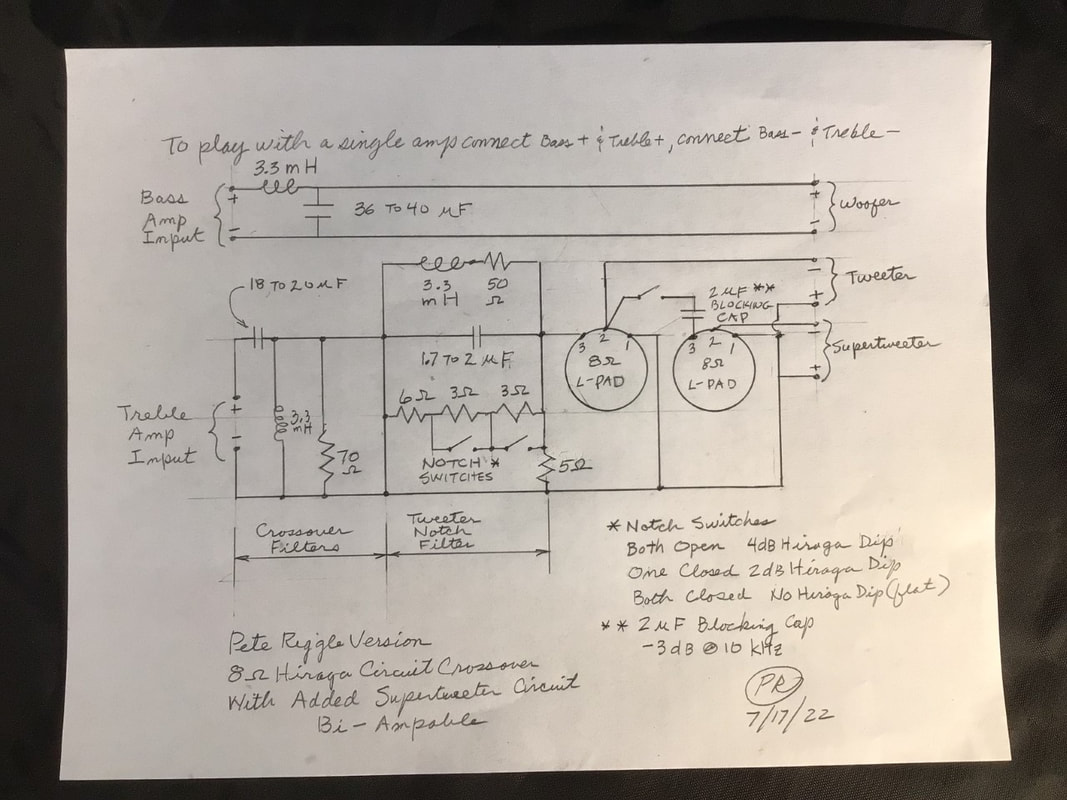 To play with a single amp connect Bass + & Treble +, connect Bass - & Treble -
3.3 mH
Bass
Amp
Input
+
-
36 TO 40 μF
+
-
Woofer
18 TO 20 μF
3.3
mH
50
Ω
2 μF **
BLOCKING
CAP
-
+
Tweeter
1.7 TO 2 μF
3 2 1
8Ω
L-PAD
3 2 1
8Ω
L-PAD
-
+
Supertweeter
6Ω 3Ω 3Ω
Treble
Amp
Input
+
-
3.3
mH
70
Ω
NOTCH *
SWITCHES
5Ω
Crossover
Filters
Tweeter
Notch
Filter
* Notch Switches
Both Open 4dB Hiraga Dip
One Closed 2dB Hiraga Dip
Both Closed No Hiraga Dip (flat)
** 2 μF Blocking Cap
-3dB @ 10 kHz
Pete Riggle Version
8Ω Hiraga Circuit Crossover
With Added Supertweeter Circuit
Bi-Ampable
PR
7/17/22